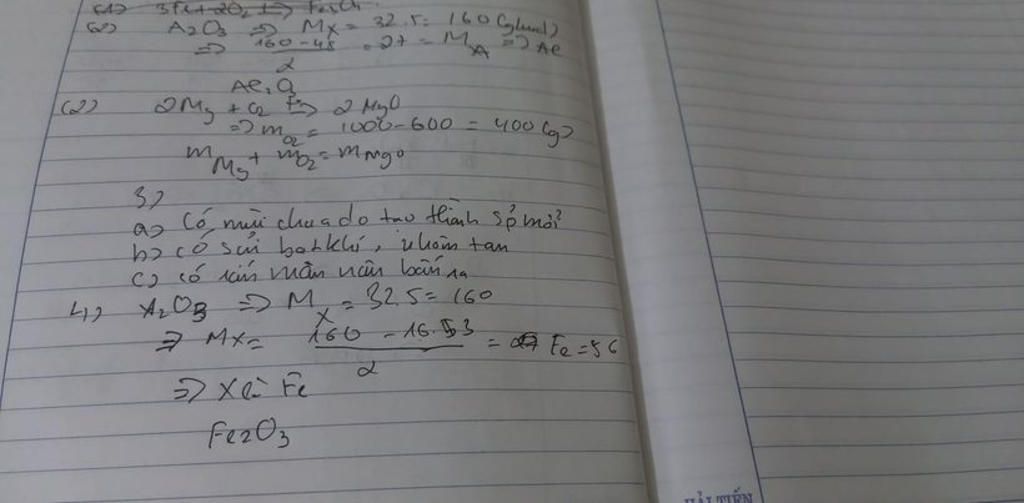 (1) 3Fe + 2O₂ => Fe₃O₄
A₂O₃ => Mx = 32.5 = 160 (g/mol)
=> 160-48 / 2 = 27 = M_A => Al
Al₂O₃
(2) 2Mg + O₂ => 2MgO
=> m_O₂ = 1000-600 = 400 (g)
m_Mg + m_O₂ = m_MgO
3)
a) Có mùi chua do tạo thành sp mới
b) có sủi bọt khí, nhôm tan
c) có
4) A₂O₃ => Mx = 32.5 = 160
=> Mx = 160 - 16.3 / 2 = Fe = 56
=> X là Fe
Fe₂O₃
HẢI TIẾN